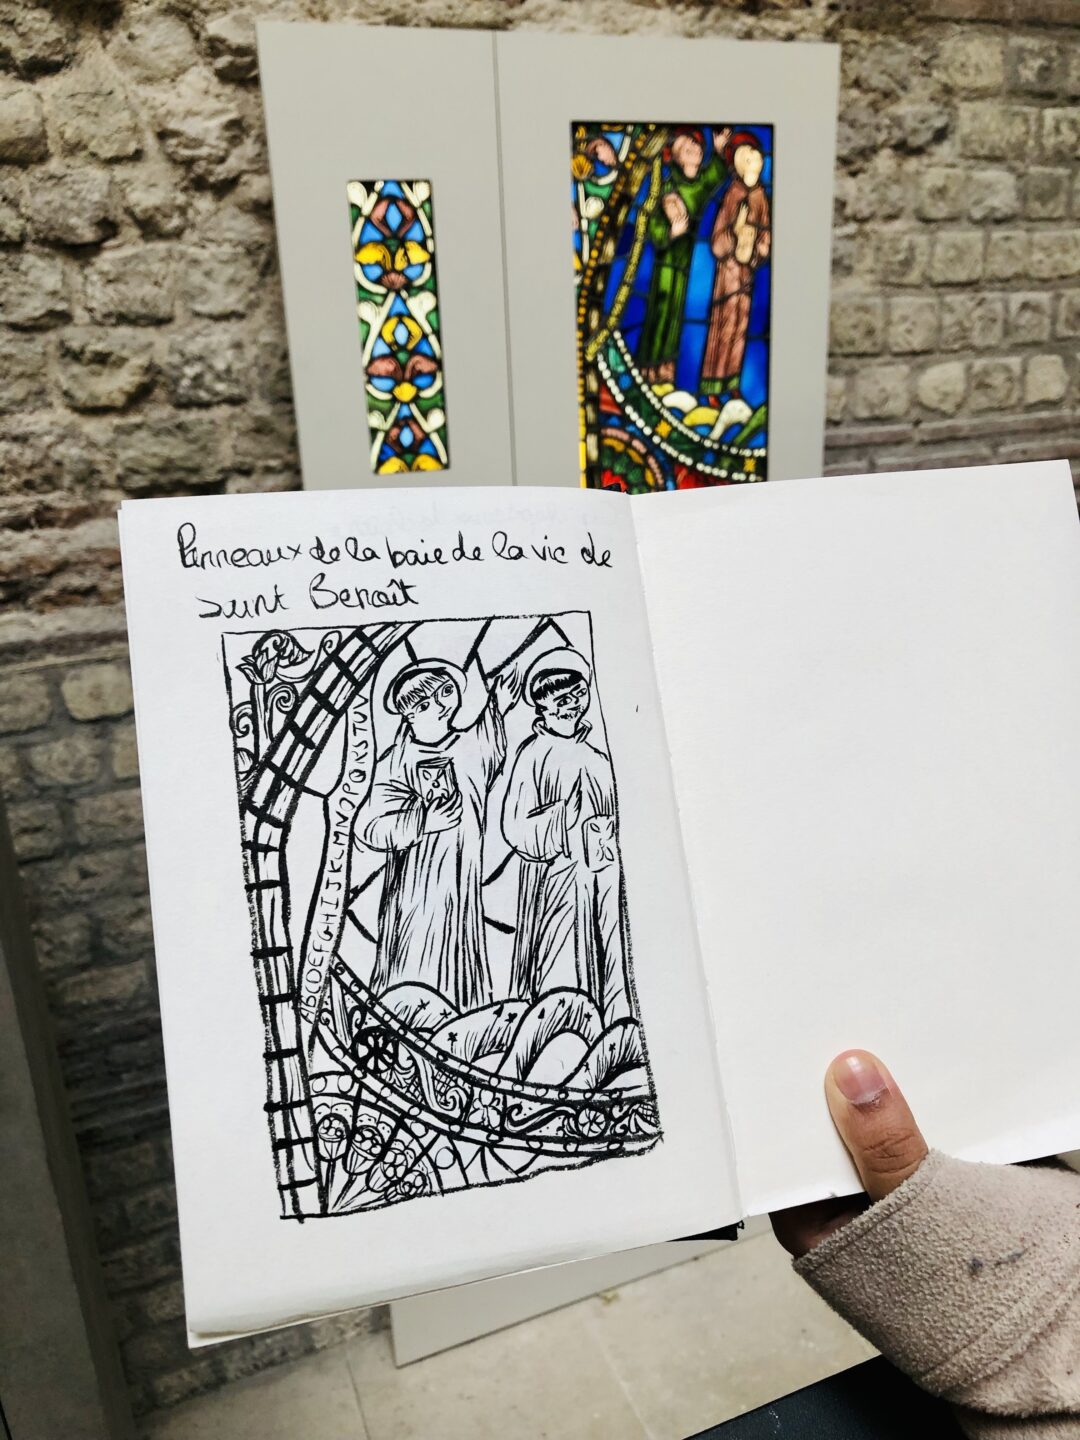 Panneaux de la baie de la vie de
saint Benoît
ABCDEFGHIJKLMNOPQRSTUV